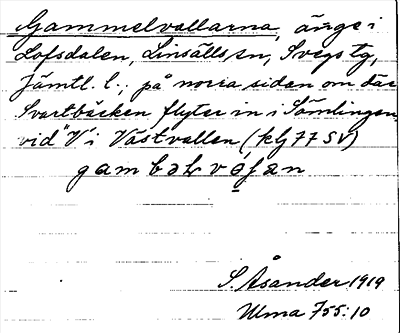 Gammelvallarna, änge i
Lofsdalen, Linsälls sn, Svegs tg,
Jämtl. l.; på norra sidan om där
Svartbäcken flyter in i Sömlingen,
vid "V" i Västvallen (klj 77 SV)
S. Åsander 1919
Ulma 755:10